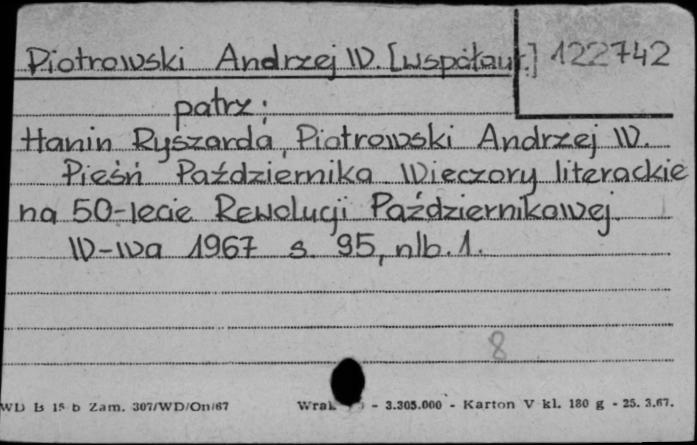 Piotrowski Andrzej W. [współaut.] 122742
patrz:
Hanin Ryszarda, Piotrowski Andrzej W.
Pieśń Października Wieczory literackie
na 50-lecie Rewolucji Październikowej.
W-wa 1967 s. 95, nlb. 1.
8
WD Is 15 b Zam. 307/WD/On/67 - 3.305.000 - Karton V kl. 180 g - 25. 3.67.